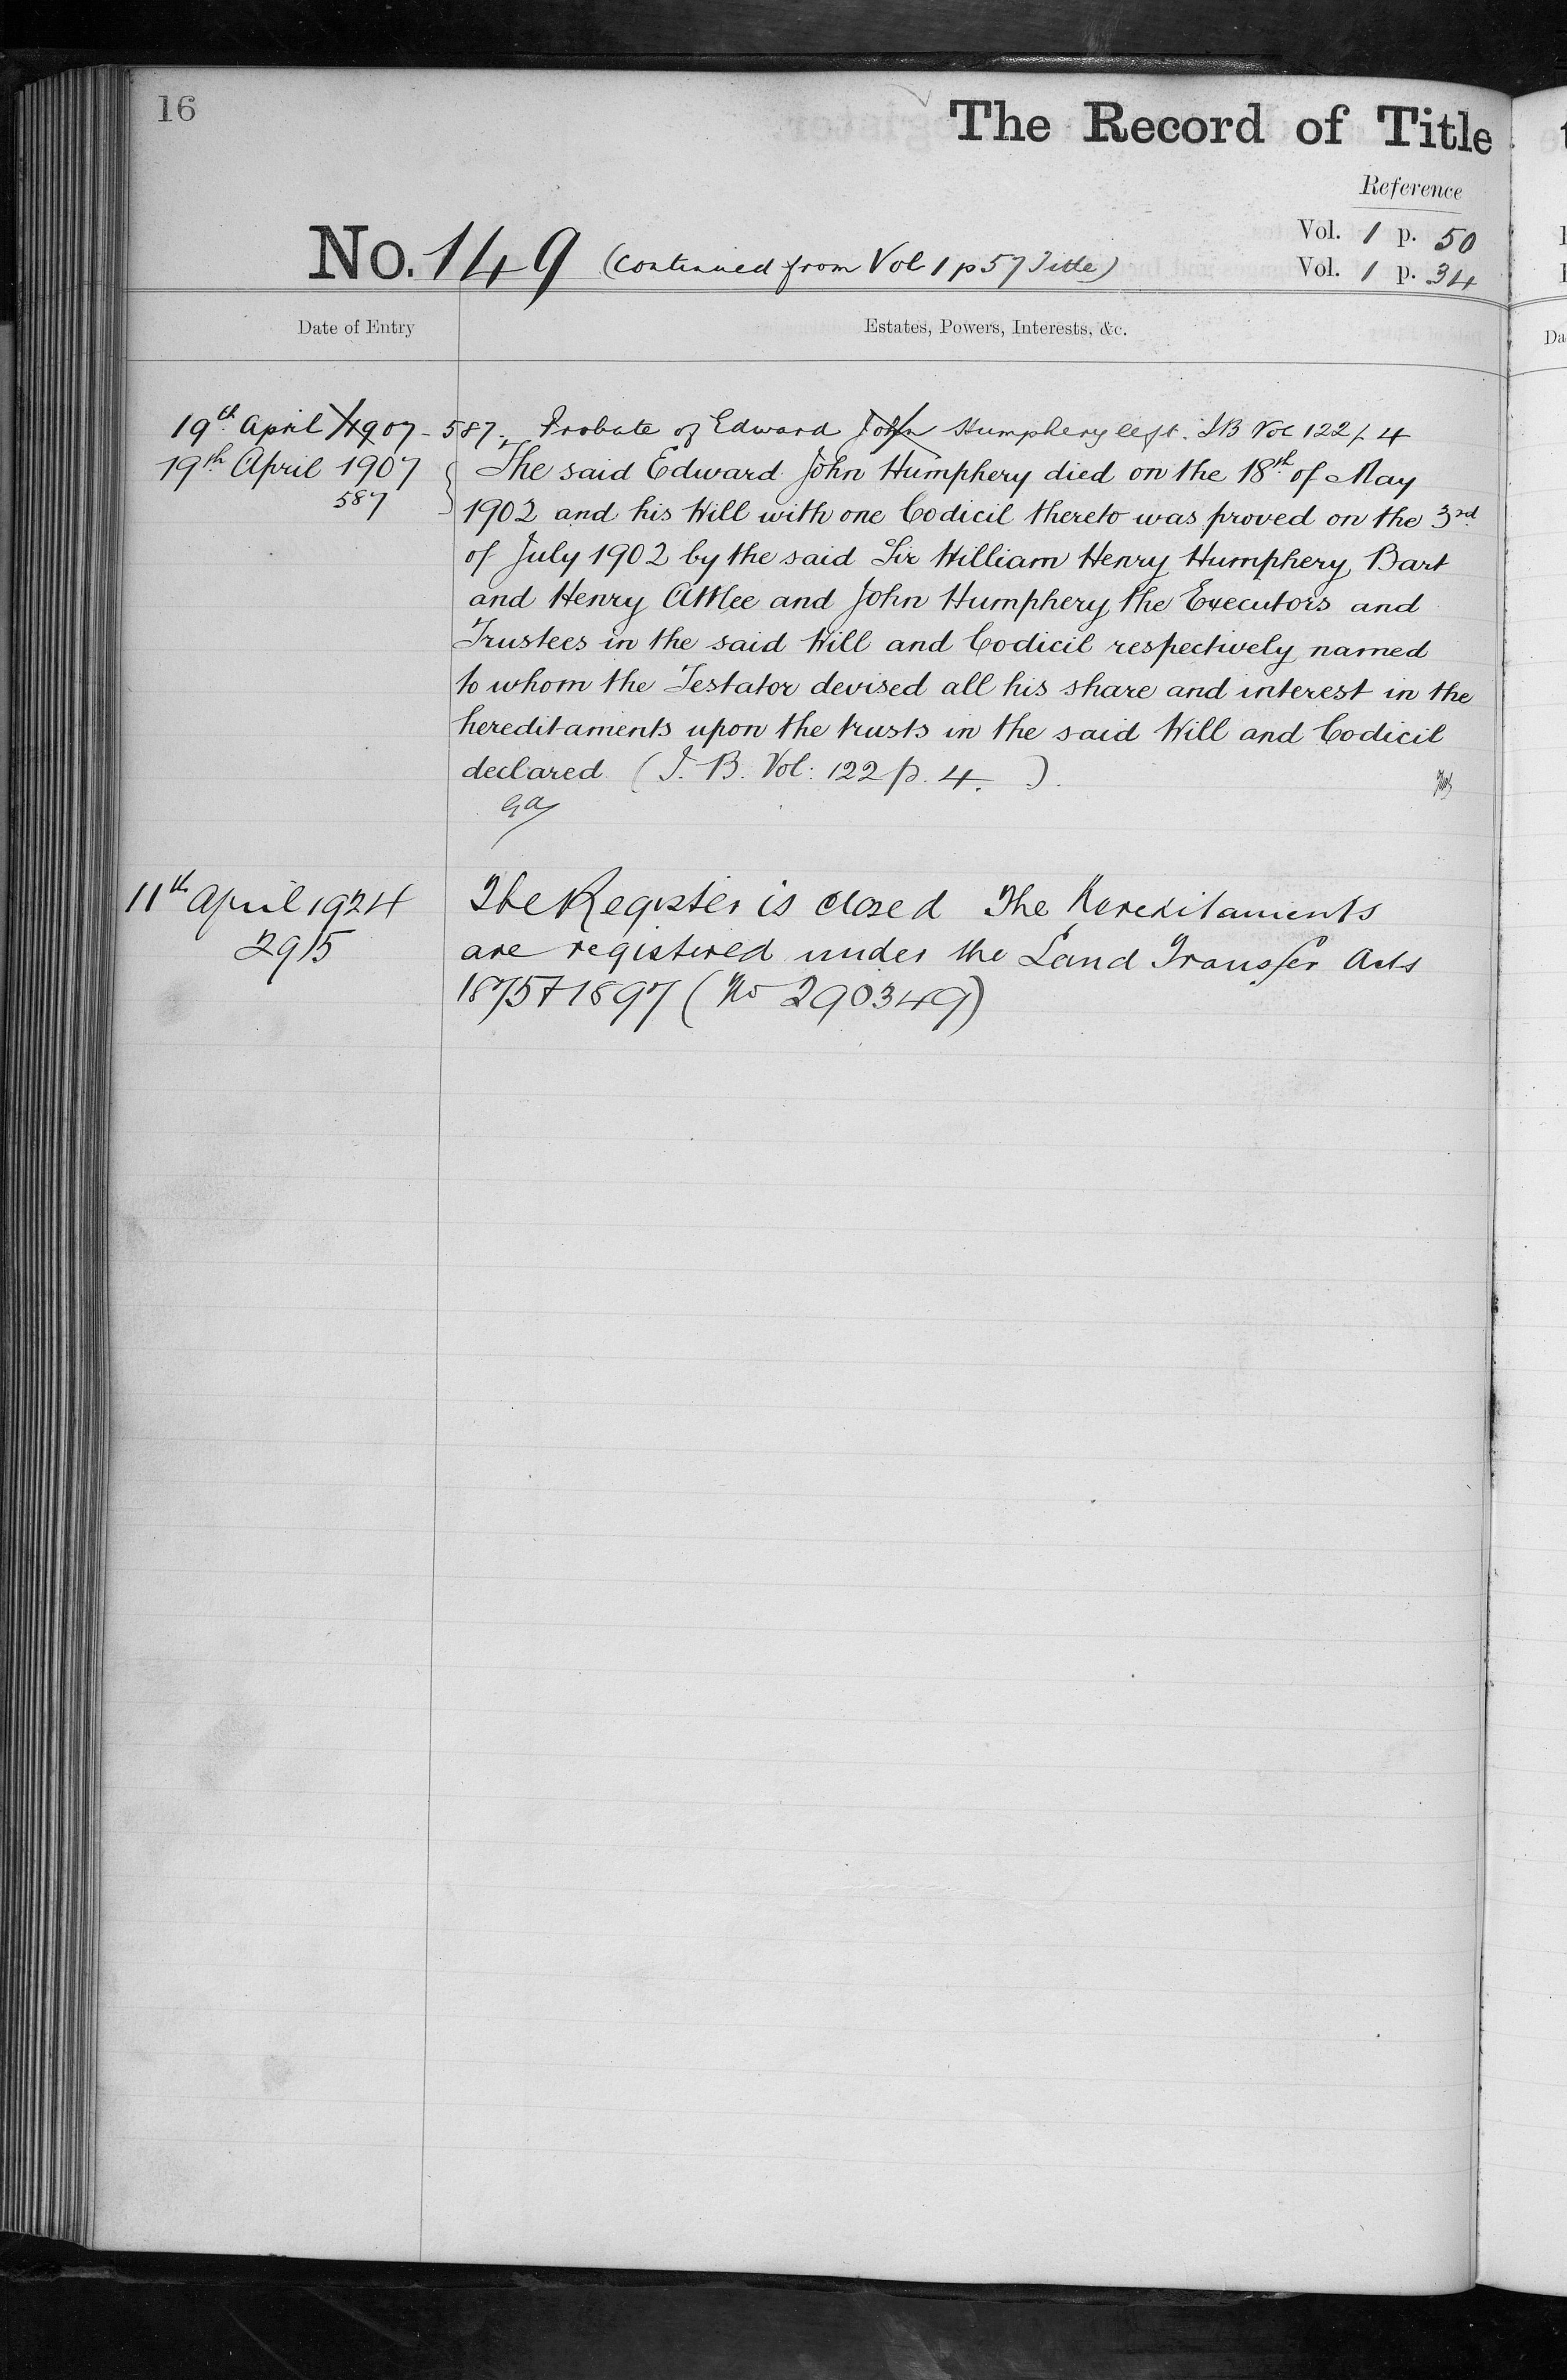 16
The Record of Title
Reference
Vol. 1 p. 50
No. 149 (Continued from Vol 1 p 57 Title)
Vol. 1 p. 34
Date of Entry
Estates, Powers, Interests, &c.
19th April 1907 - 587. Probate of Edward John Humphery left. IB Vol 122 p. 4
19th April 1907
587
The said Edward John Humphery died on the 18th of May
1902 and his Will with one Codicil thereto was proved on the 3rd
of July 1902 by the said Sir William Henry Humphery Bart
and Henry Attlee and John Humphery the Executors and
Trustees in the said Will and Codicil respectively named
to whom the Testator devised all his share and interest in the
hereditaments upon the trusts in the said Will and Codicil
declared (I. B. Vol: 122 p. 4. ).
11th April 1924
2915
The Register is closed The Hereditaments
are registered under the Land Transfer Acts
1875 + 1897 (No 290349)